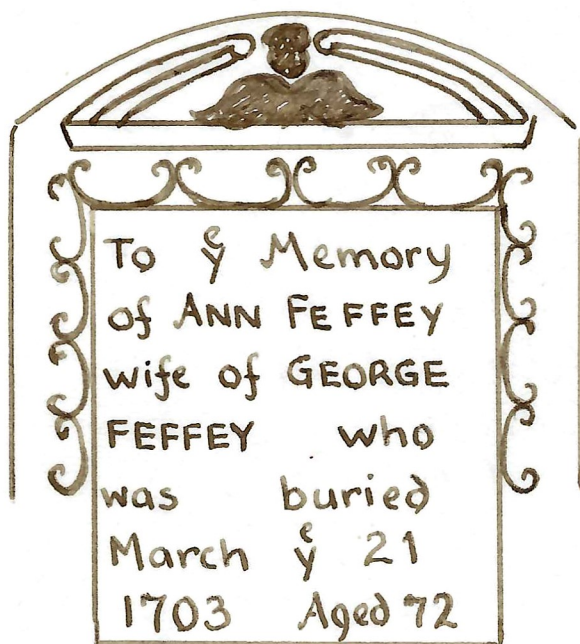 To yᵉ Memory
of ANN FEFFEY
wife of GEORGE
FEFFEY who
was buried
March yᵉ 21
1703 Aged 72